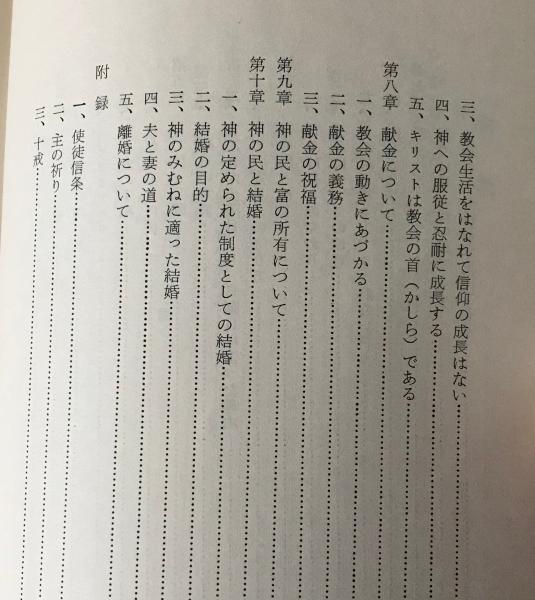 三、教会生活をはなれて信仰の成長はない
四、神への服従と忍耐に成長する
五、キリストは教会の首（かしら）である
第八章　献金について
一、教会の動きにあづかる
二、献金の義務
三、献金の祝福
第九章　神の民と富の所有について
第十章　神の民と結婚
一、神の定められた制度としての結婚
二、結婚の目的
三、神のみむねに適った結婚
四、夫と妻の道
五、離婚について
附　録
一、使徒信条
二、主の祈り
三、十戒